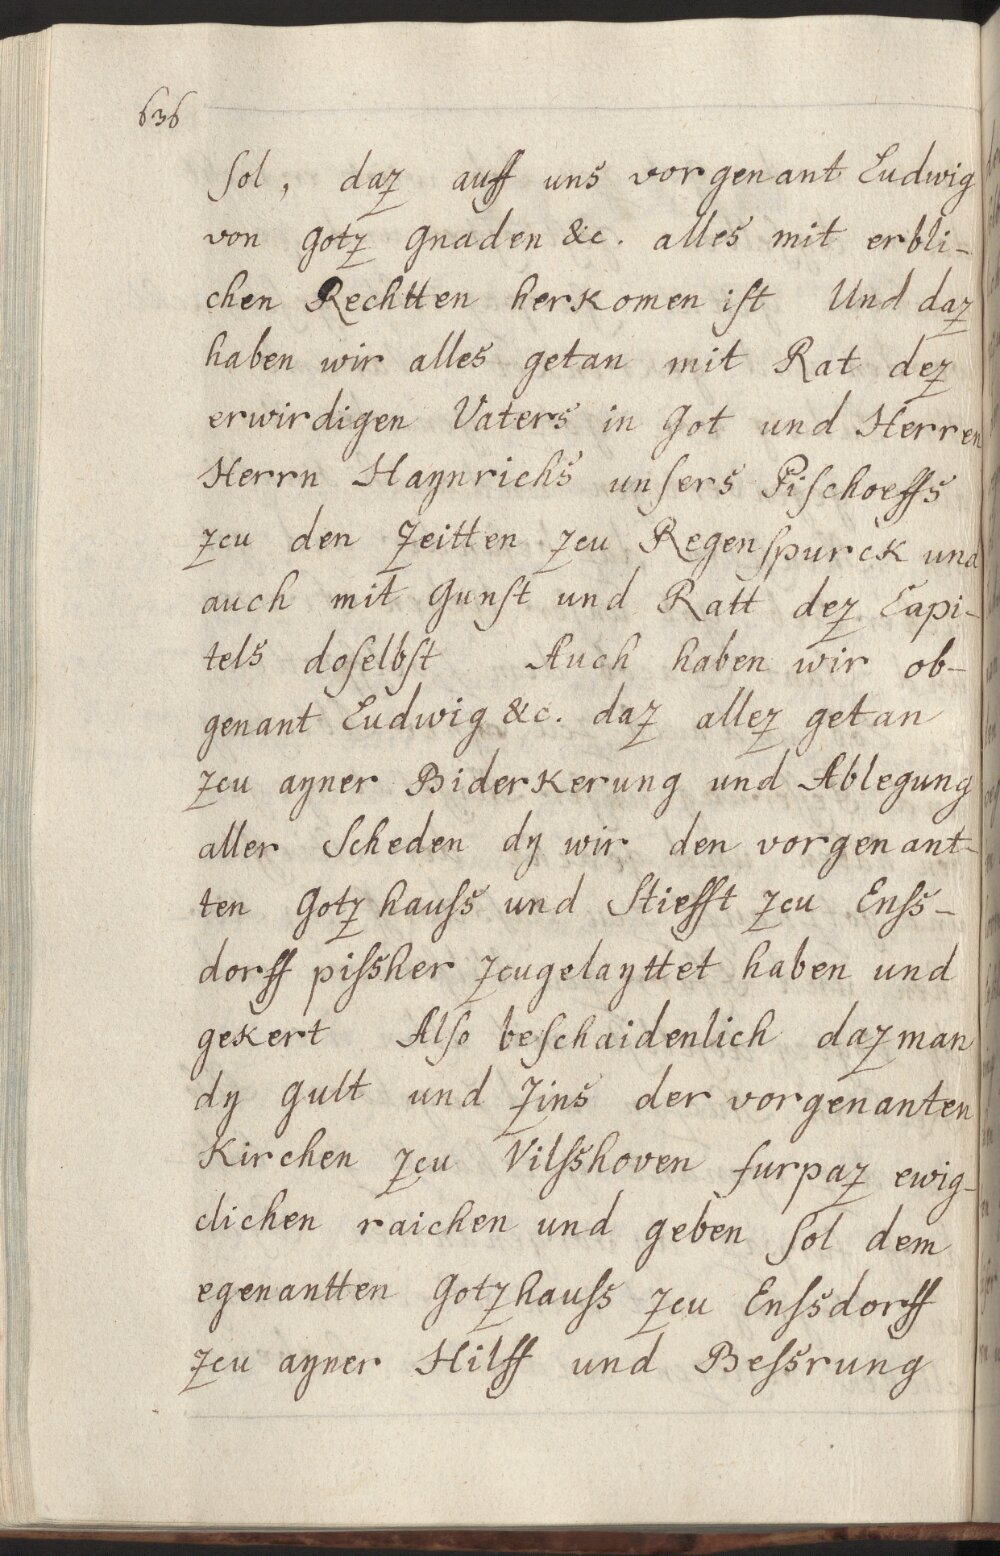 636
sol, daz auff uns vorgenant Ludwig
von gotz gnaden &c. alles mit erbli-
chen Rechtten herkomen ist Und daz
haben wir alles getan mit Rat dez
erwirdigen Vaters in Got und Herren
Herrn Haynrichs unsers Pischoeffs
zcu den Zeitten zcu Regenspurck und
auch mit Gunst und Ratt dez Capi-
tels doselbst Auch haben wir ob-
genant Ludwig &c. daz allez getan
zcu ayner Biderkerung und Ablegung
aller Scheden dy wir den vorgenant-
ten Gotzhauss und Stiefft zcu Enss-
dorff pissher zcugelayttet haben und
gekert Also beschaidenlich daz man
dy gult und Zins der vorgenanten
Kirchen zcu Vilsshoven furpaz ewig-
clichen raichen und geben sol dem
egenantten Gotzhauss zcu Enssdorff
zcu ayner Hilff und Bessrung